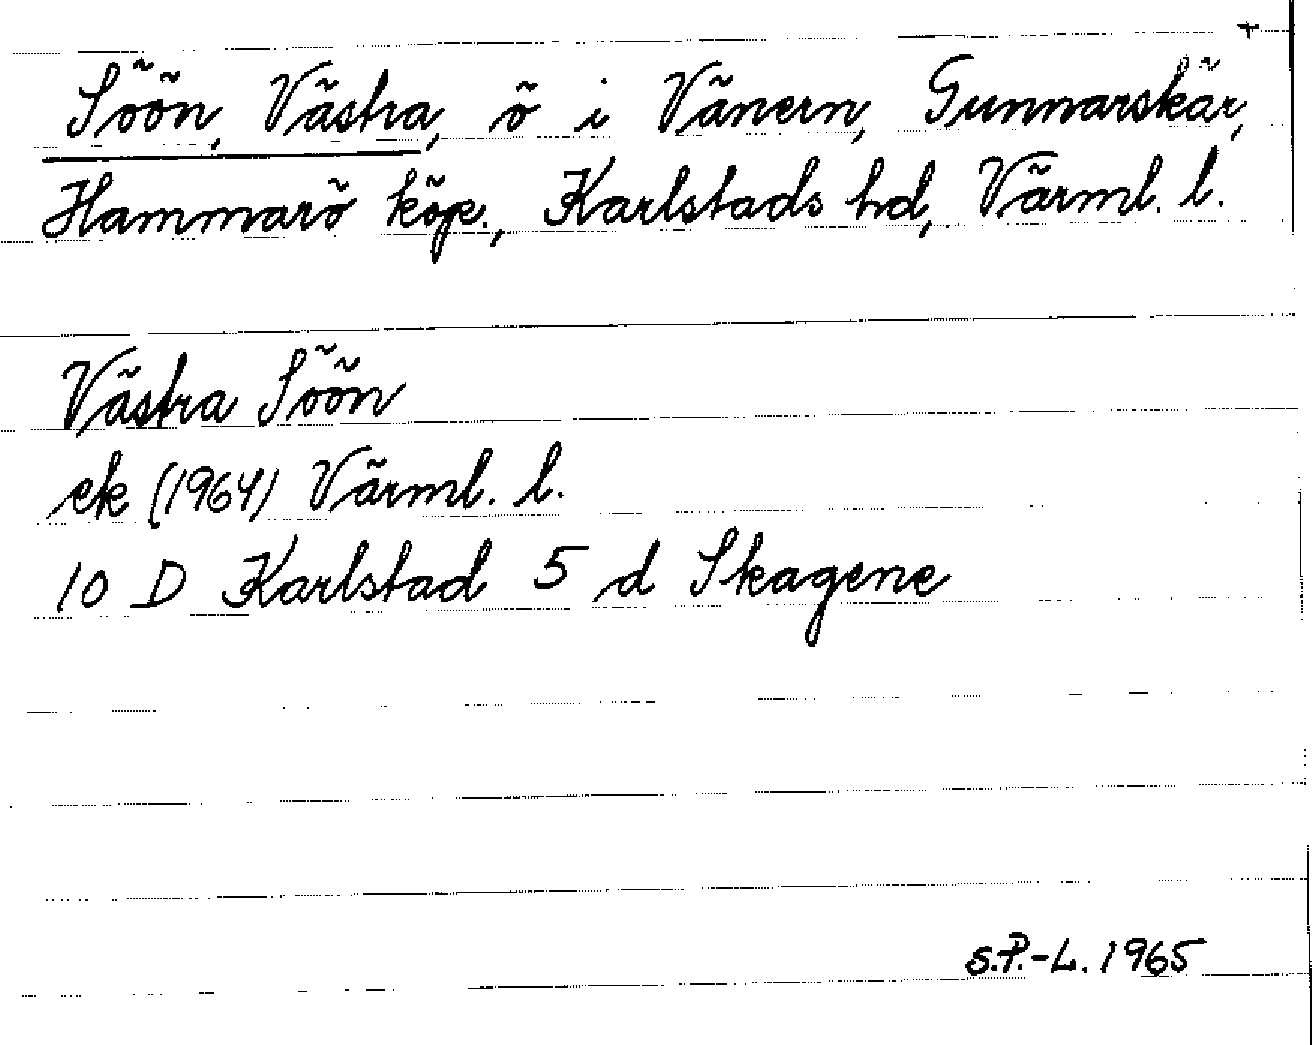 +
Söön, Västra, ö i Vänern, Gunnarskär,
Hammarö köp., Karlstads hd, Värml. l.
Västra Söön
ek (1964) Värml. l.
10 D Karlstad 5 d Skagene
S.P.-L. 1965